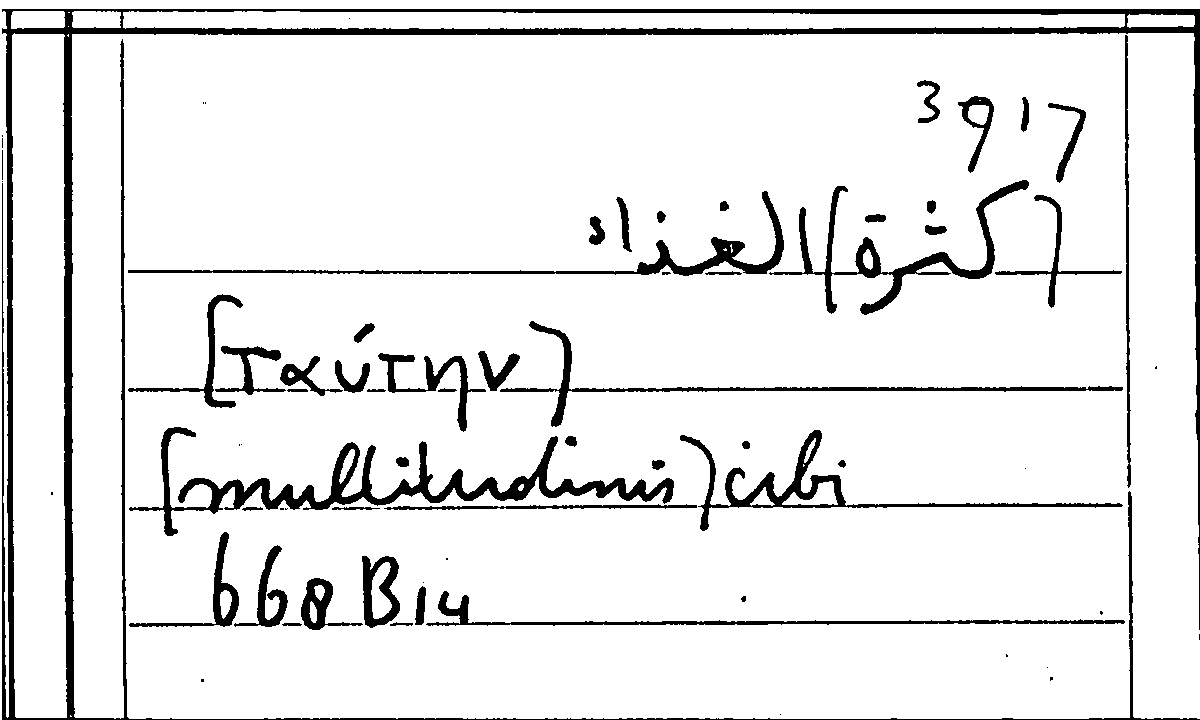 3917
(كثرة) الغذاء
[ταύτην]
[multitudinis] cibi
668 B 14